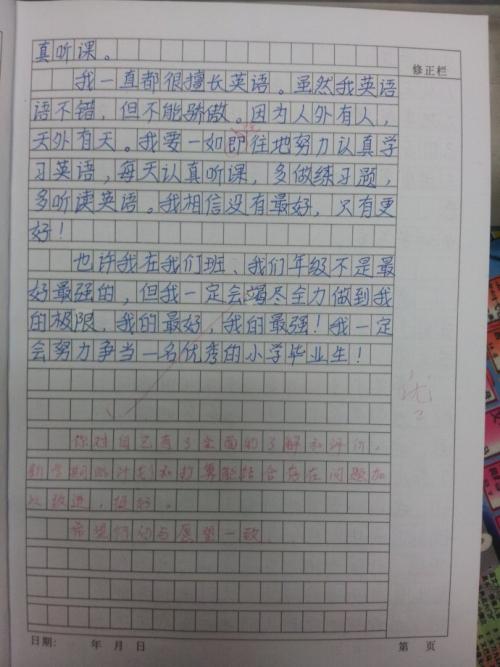 真听课。
修正栏
我一直都很擅长英语。虽然我英语
语不错，但不能骄傲。因为人外有人，
天外有天。我要一如即往地努力认真学
习英语，每天认真听课，多做练习题，
多听读英语。我相信没有最好，只有更
好！
也许我在我们班、我们年级不是最
好最强的，但我一定会竭尽全力做到我
的极限，我的最好，我的最强！我一定
会努力争当一名优秀的小学毕业生！
优
你对自己有了全面的了解和评价，
新学期的计划和打算能结合存在问题加
以改进，很好。
希望行动与愿望一致。
日期: 年 月 日
第 页